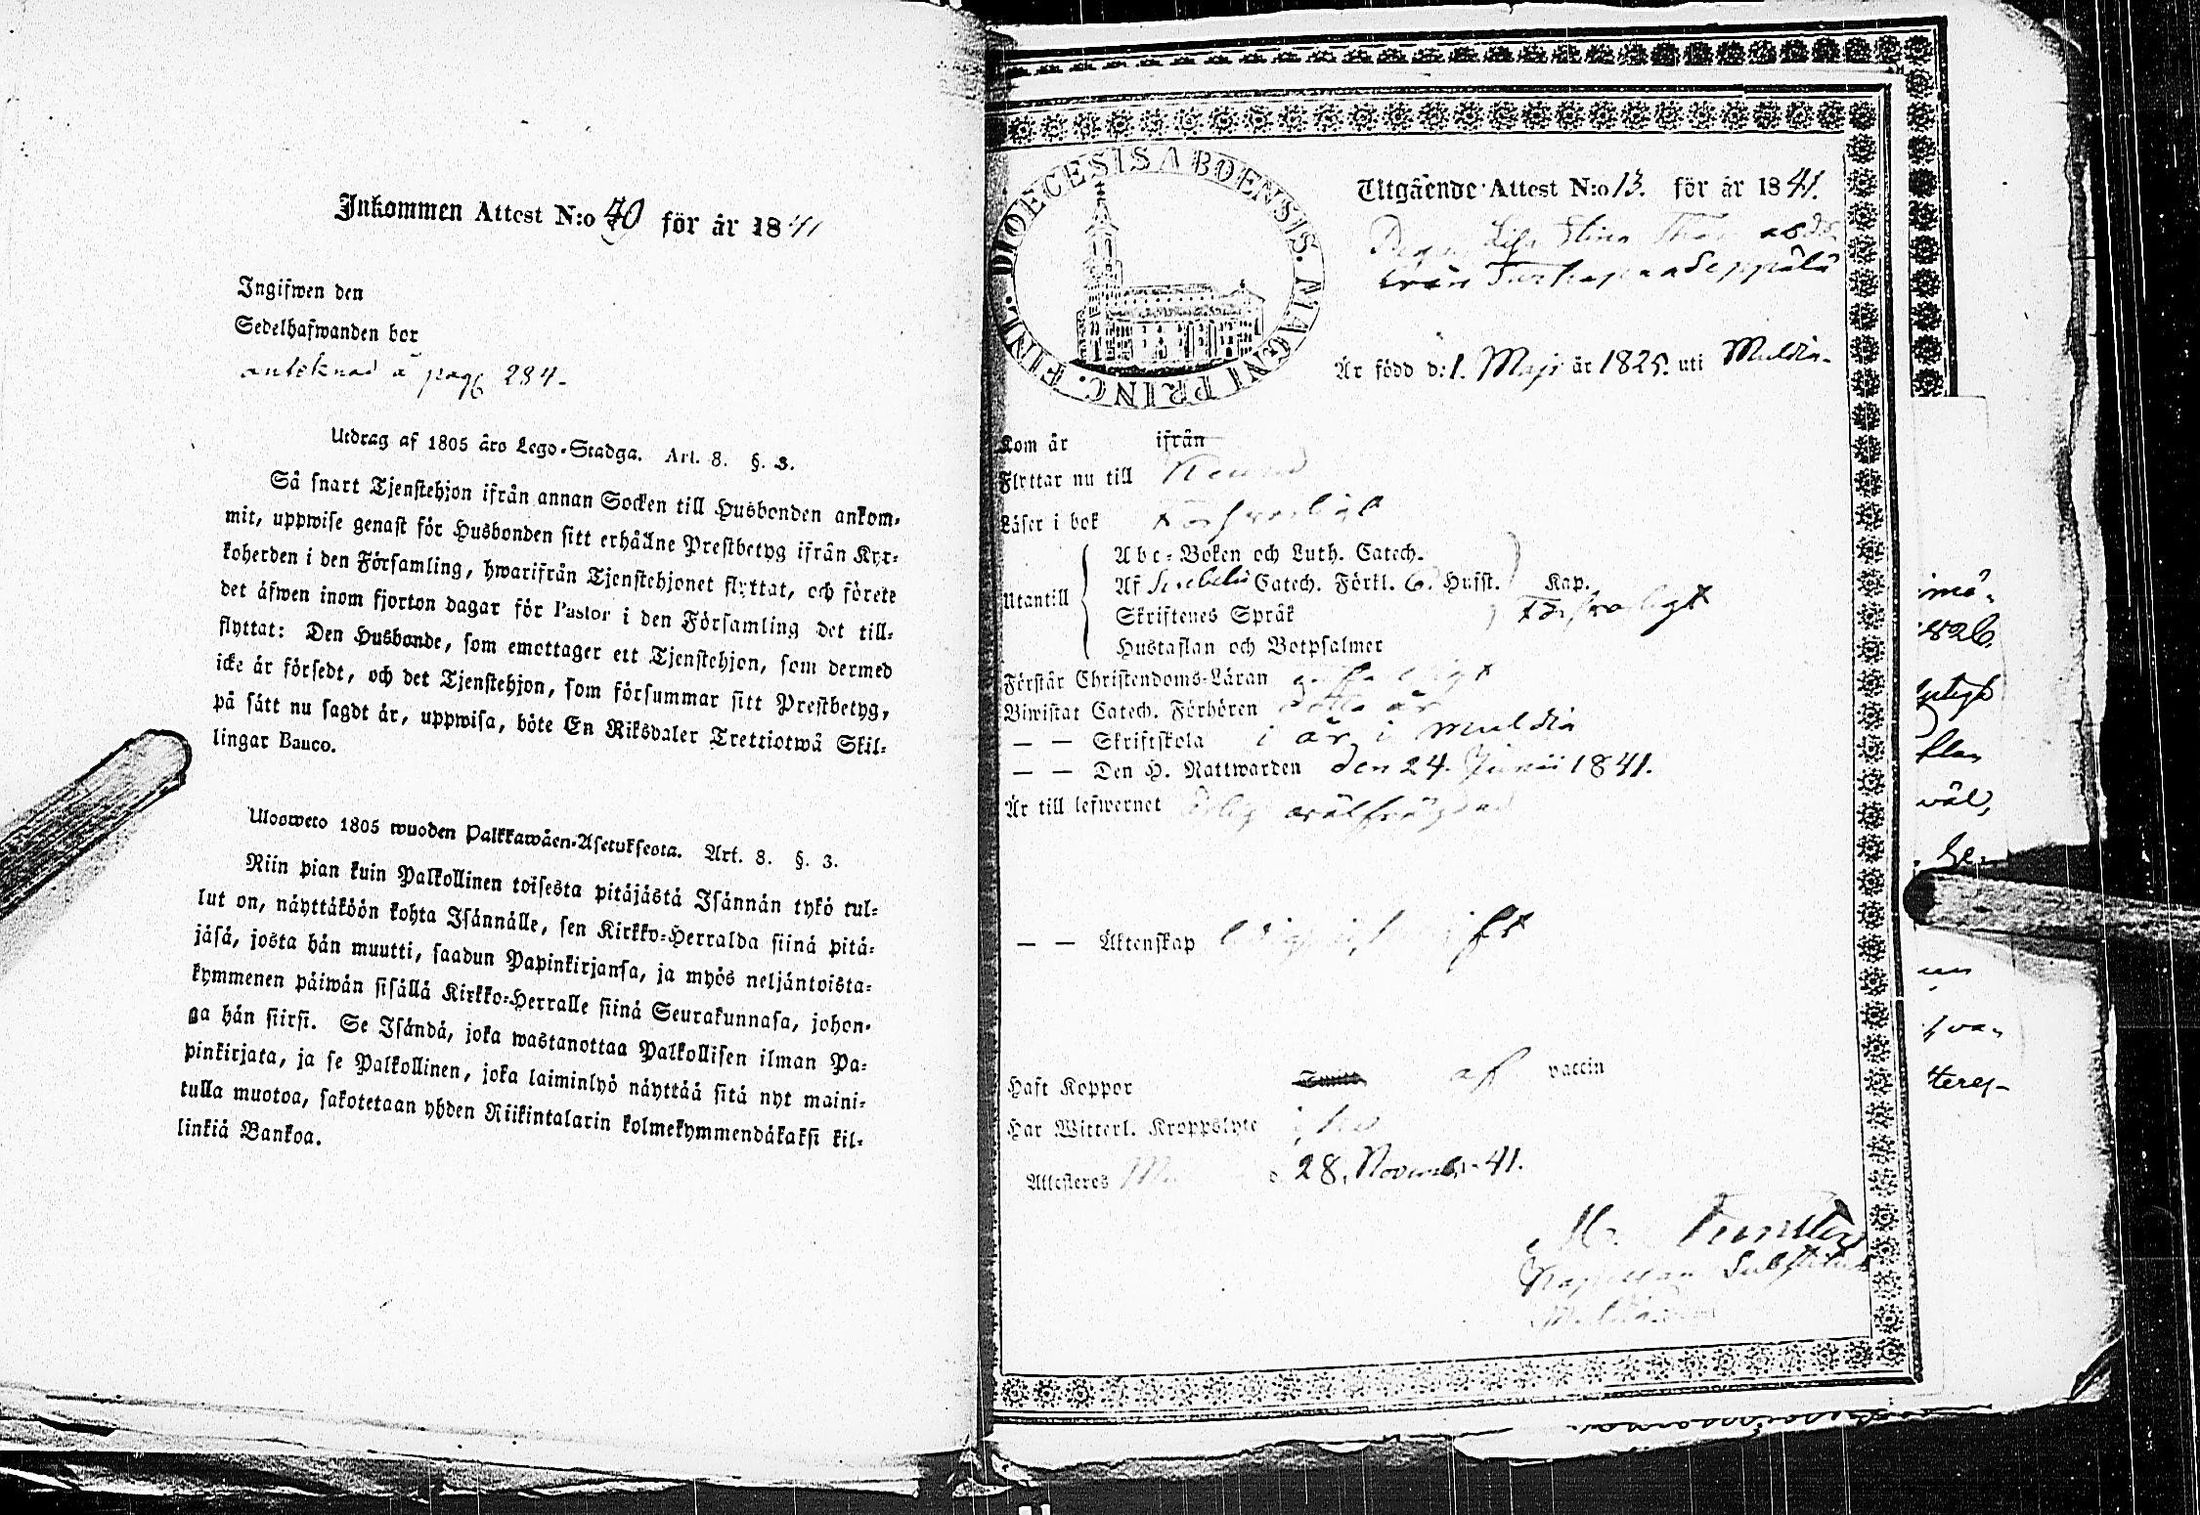 Inkommen Attest N:o 40 för år 1841
Ingifwen den
Sedelhafwanden bor
anteknad å pag 284.
Utdrag af 1805 års Lego-Stadga. Art. 8. §. 3.
Så snart Tjenstehjon ifrån annan Socken till Husbonden ankom-
mit, uppwise genast för Husbonden sitt erhållne Prestbetyg ifrån Kyr-
koherden i den Församling, hwarifrån Tjenstehjonet flyttat, och förete
det äfwen inom fjorton dagar för Pastor i den Församling det till-
flyttat: Den Husbonde, som emottager ett Tjenstehjon, som dermed
icke är försedt, och det Tjenstehjon, som försummar sitt Prestbetyg,
på sätt nu sagdt är, uppwisa, böte En Riksdaler Trettiotwå Skil-
lingar Banco.
Uloosweto 1805 wuoden Palkkawäen-Asetuksesta. Art. 8. §. 3.
Niin pian kuin Palkollinen toisesta pitäjästä Isännän tykö tul-
lut on, näyttäköön kohta Isännälle, sen Kirkko-Herralda siinä pitä-
jäsä, josta hän muutti, saadun Papinkirjansa, ja myös neljäntoista-
kymmenen päiwän sisällä Kirkko-Herralle siinä Seurakunnasa, johon-
ga hän siirsi. Se Isändä, joka wastanottaa Palkollisen ilman Pa-
pinkirjata, ja se Palkollinen, joka laiminlyö näyttää sitä nyt maini-
tulla muotoa, sakotetaan yhden Riikintalarin kolmekymmendäkaksi kil-
linkiä Bankoa.
DIOECESIS ABOENSIS. MAGNI PRINC. FINL.
Utgående Attest N:o 13. för år 1841.
Pigan Lisa Stina
från Seppälä
Är född d: 1. Maji år 1825. uti Muldia.
Kom år ifrån
Flyttar nu till Keuru
Läser i bok Försvarligt
Utantill
Abc-Boken och Luth. Catech.
Af Svebelii Catech. Förkl. 6. Hufst. Kap.
Skriftenes Språk Försvarligt
Hustaflan och Botpsalmer
Förstår Christendoms-Läran
Biwistat Catech. Förhören detta år
— — Skriftskola i år i Muldia
— — Den H. Nattwarden den 24. Junii 1841.
Är till lefwernet ärlig wälfrägdad
— — Äktenskap
Haft Koppor af vaccin
Har Witterl. Kroppslyte
Attesteras d. 28. November 41.
Kapellan Substitut
imä-
1826.
väl,